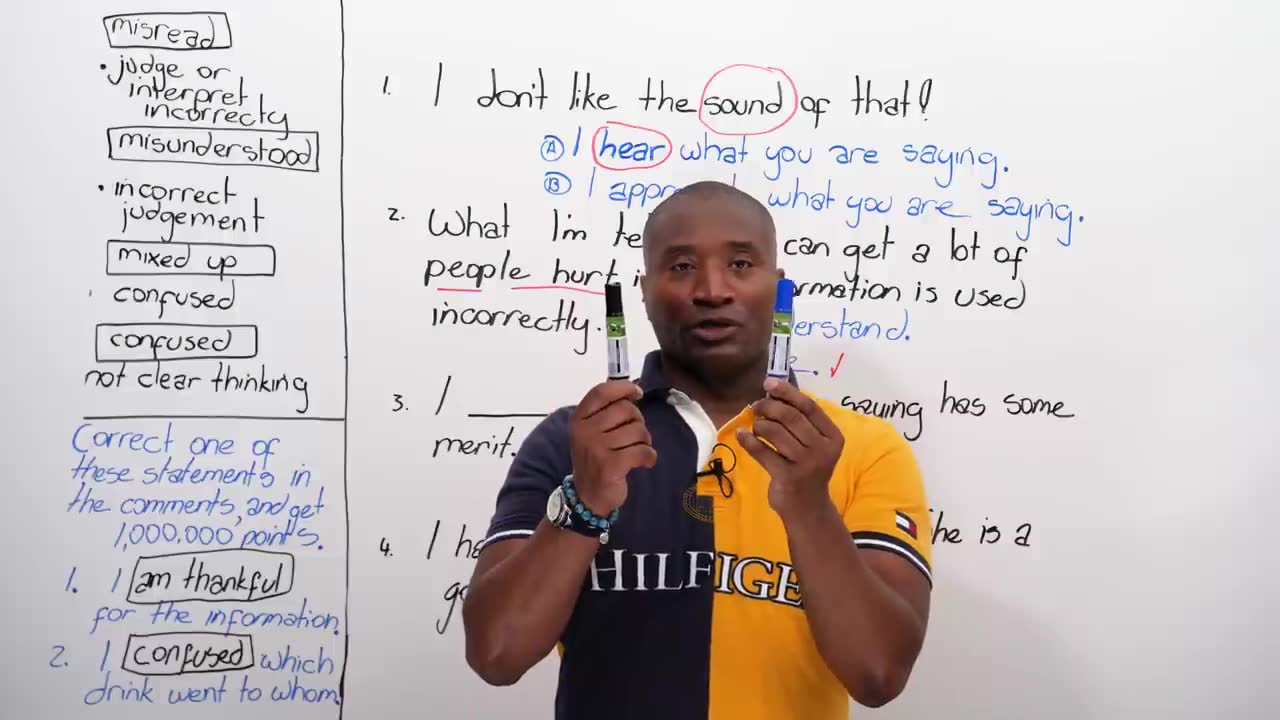 misread
• judge or
interpret
incorrecty
misunderstood
• incorrect
judgement
mixed up
confused
confused
not clear thinking
Correct one of
these statements in
the comments, and get
1,000,000 points.
1. I am thankful
for the information.
2. I confused which
drink went to whom.
1. I don't like the sound of that!
Ⓐ I hear what you are saying.
Ⓑ I what you are saying.
2. What I'm can get a lot of
people hurt is used
incorrectly.
3. I ______ saying has some
merit.
4. I he is a
HILFIGE